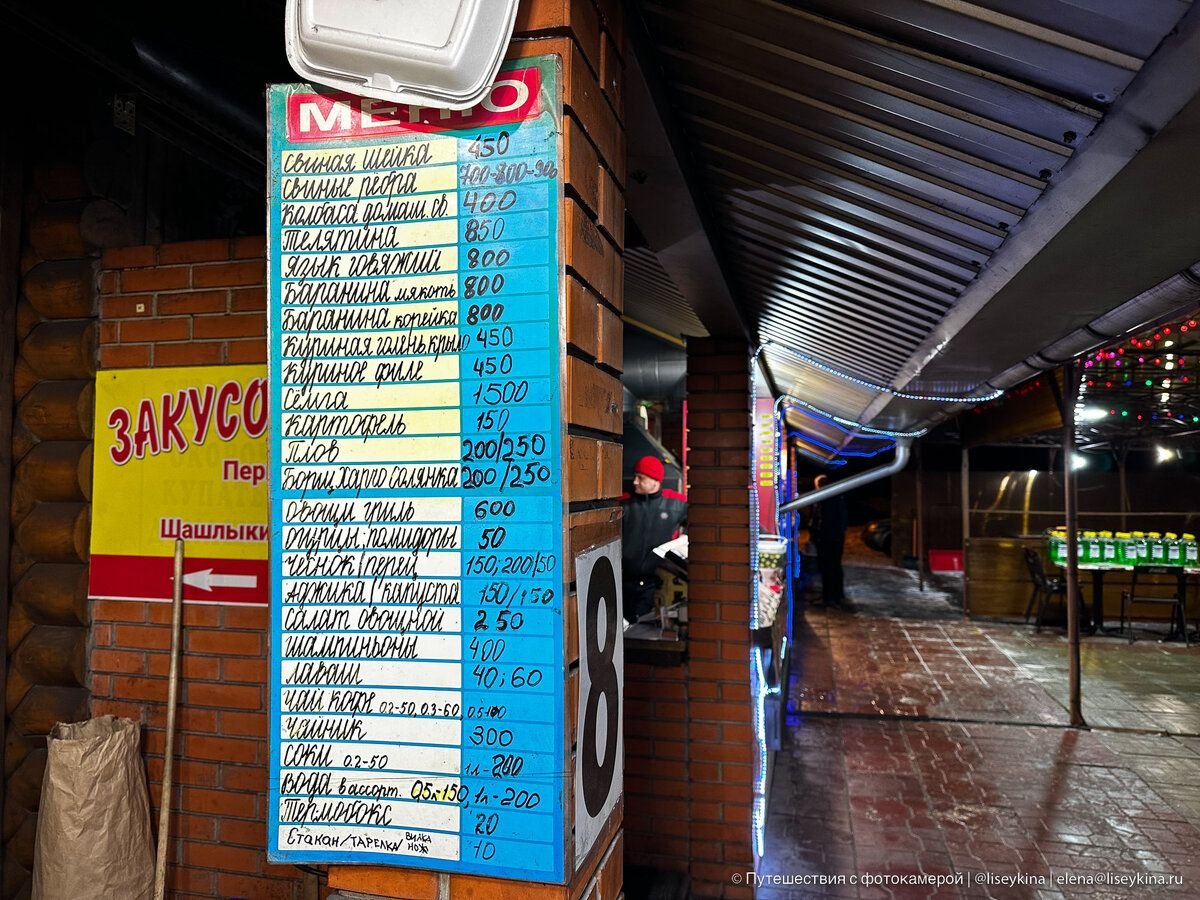 МЕНЮ
свиная шейка 450
свиные рёбра 700-800-900
колбаса домаш. св. 400
телятина 850
язык говяжий 800
Баранина мякоть 800
Баранина корейка 800
куриная голень крыло 450
куриное филе 450
сёмга 1500
картофель 150
Плов 200/250
Борщ Харчо Солянка 200/250
овощи гриль 600
огурцы; помидоры 50
чеснок/перец 150; 200/50
Аджика/капуста 150/150
салат овощной 250
шампиньоны 400
лаваш 40; 60
чай кофе 0.2-50, 0.3-60, 0.5-100
чайник 300
соки 0.2-50 1л-200
вода в ассорт. 0,5л-150, 1л-200
термобокс 20
Стакан/тарелка/ вилка нож 10
ЗАКУСО
Пер
Шашлыки
8
© Путешествия с фотокамерой | @liseykina | elena@liseykina.ru